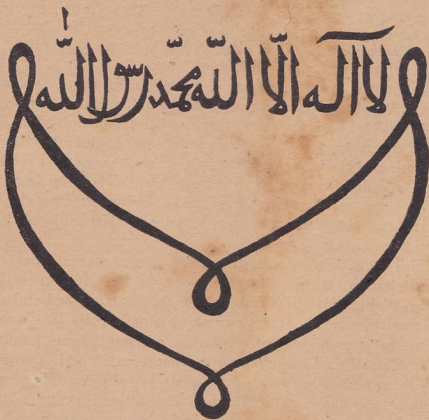 لا اله الّا اللّه محمّد رسول اللّه